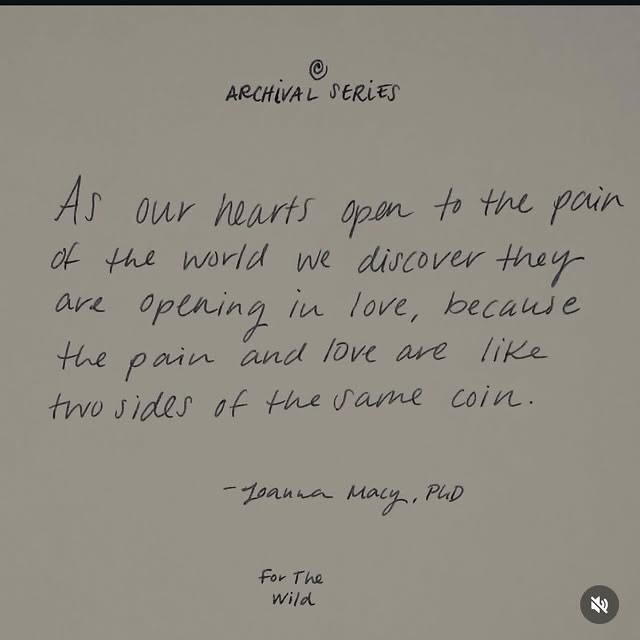 ARCHIVAL SERIES
As our hearts open to the pain
of the world we discover they
are opening in love, because
the pain and love are like
two sides of the same coin.
- Joanna Macy, PhD
For The
Wild